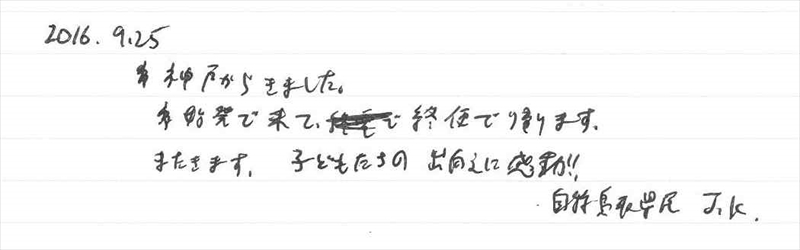 2016.9.25
神戸からきました。
始発で来て、終便で帰ります。
またきます。 子どもたちの出向えに感動!!
自称鳥取県民 J.K.